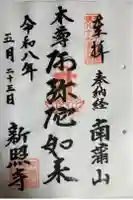 奉拝
奉納経
南蒲山
本尊 阿弥陀如来
令和八年
五月二十三日
新照寺